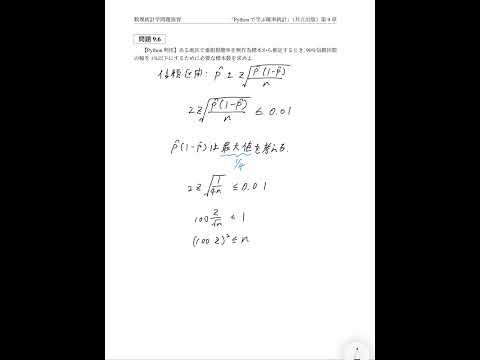 数理統計学問題演習 「Pythonで学ぶ確率統計」(共立出版)第9章
問題 9.6
【Python 利用】ある地区で番組視聴率を無作為標本から推定するとき,99%信頼区間
の幅を1%以下にするために必要な標本数を求めよ.
信頼区間: p̂ ± z√(p̂(1-p̂)/n)
2z√(p̂(1-p̂)/n) ≤ 0.01
p̂(1-p̂)は最大値を考える.
1/4
2z√(1/4n) ≤ 0.01
100 z/√n ≤ 1
(100 z)² ≤ n